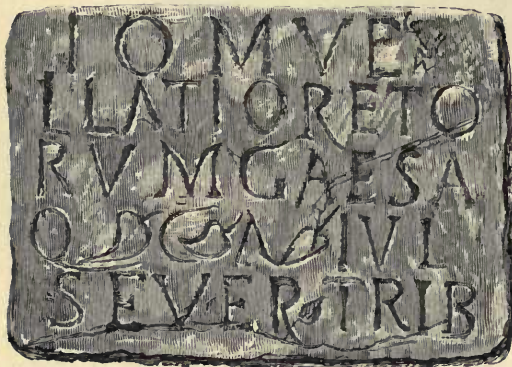 I O M VEX
LLATIO RETO
RVM GAESA
Q C A IVL
SEVER TRIB